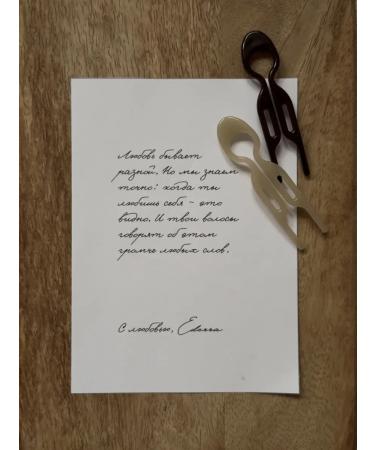 Любовь бывает
разной. Но мы знаем
точно: когда ты
любишь себя - это
видно. И твои волосы
говорят об этом
громче любых слов.
С любовью,